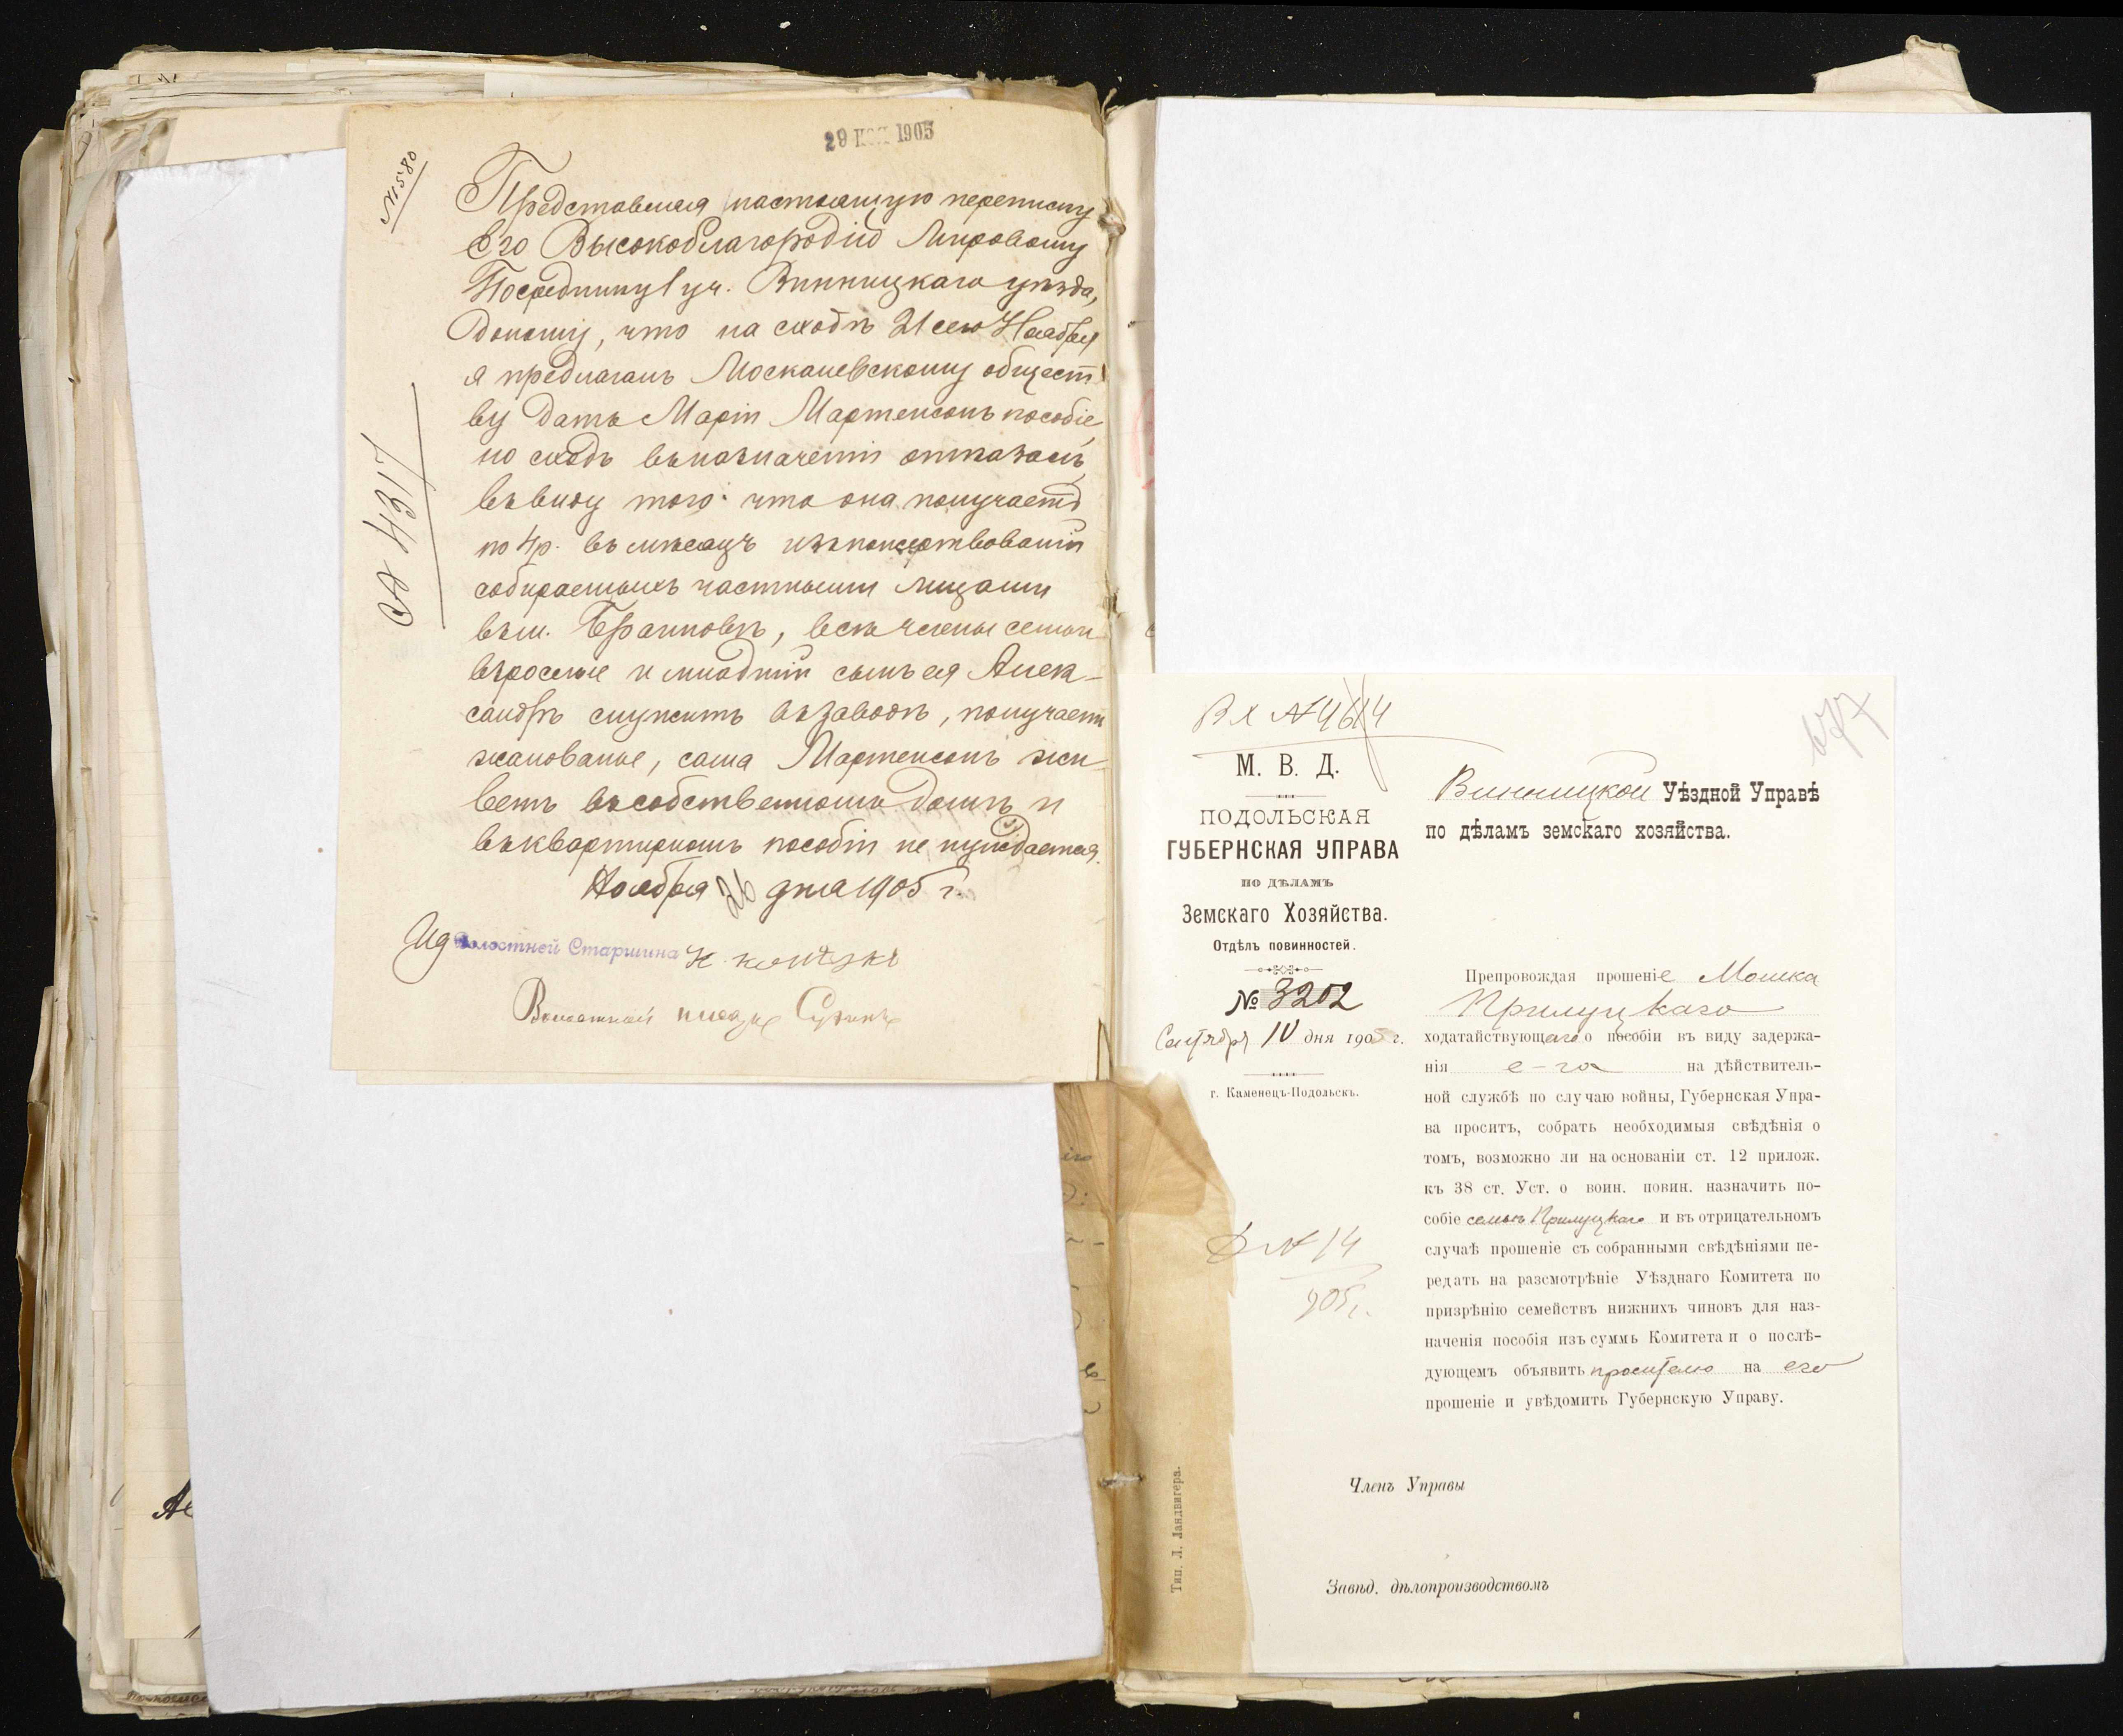 29 НОЯ 1905
№ 580
Представляя настоящую переписку
Его Высокоблагородію Мировому
Посреднику 1 уч. Винницкаго уѣзда,
доношу, что на сходѣ 21 сего Ноября
я предлагалъ Москалевскому общест
ву дать Маріи Мартенсонъ пособіе,
но сходъ въ назначеніи отказалъ,
въ виду того что она получаетъ
по 4 р. въ мѣсяцъ изъ пожертвованій
собираемыхъ частными лицами
въ м. Браиловѣ, всѣ члены семьи
взрослые и младшій сынъ ея Алек-
сандръ служитъ въ заводѣ, получаетъ
жалованье, сама Мартенсонъ жи-
ветъ въ собственномъ домѣ и
въ квартирномъ пособіи не нуждается.
Ноября 26 дня 1905 г.
Ид Волостней Старшина
Волостной писарь
4317
Вх № 4614
677
М. В. Д.
ПОДОЛЬСКАЯ
ГУБЕРНСКАЯ УПРАВА
ПО ДѢЛАМЪ
Земскаго Хозяйства.
Отдѣлъ повинностей.
№ 3202
Сентября 10 дня 1905 г.
г. Каменецъ-Подольскъ.
№ 14
905 г.
Тип. Л. Ландвигера.
Винницкой Уѣздной Управѣ
по дѣламъ земскаго хозяйства.
Препровождая прошеніе Мошка
Прилуцкаго
ходатайствующаго о пособіи въ виду задержа-
нія е-го на дѣйствитель-
ной службѣ по случаю войны, Губернская Упра-
ва проситъ, собрать необходимыя свѣдѣнія о
томъ, возможно ли на основаніи ст. 12 прилож.
къ 38 ст. Уст. о воин. повин. назначить по-
собіе семьѣ Прилуцкаго и въ отрицательномъ
случаѣ прошеніе съ собранными свѣдѣніями пе-
редать на разсмотрѣніе Уѣзднаго Комитета по
призрѣнію семействъ нижнихъ чиновъ для наз-
наченія пособія изъ суммъ Комитета и о послѣ-
дующемъ объявить просителю на его
прошеніе и увѣдомить Губернскую Управу.
Членъ Управы
Завѣд. дѣлопроизводствомъ